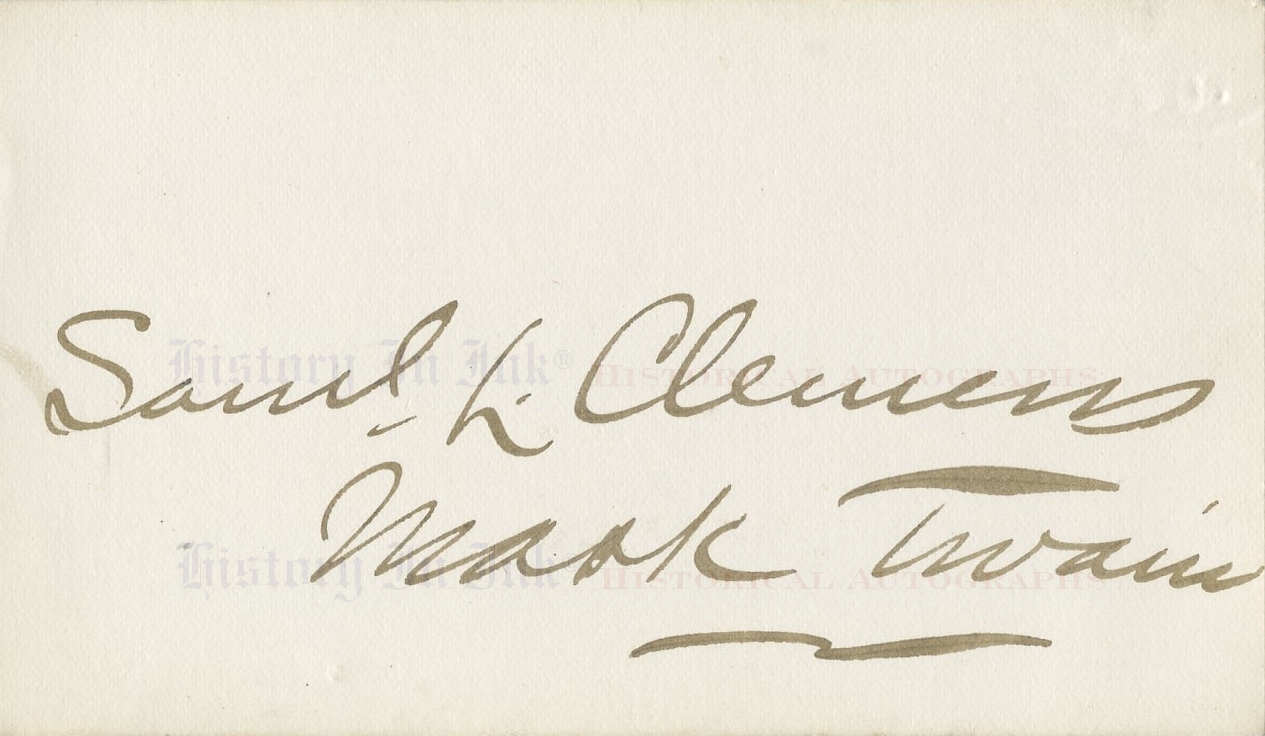 Saml. L. Clemens
History In Ink® HISTORICAL AUTOGRAPHS
Mark Twain
History In Ink® HISTORICAL AUTOGRAPHS